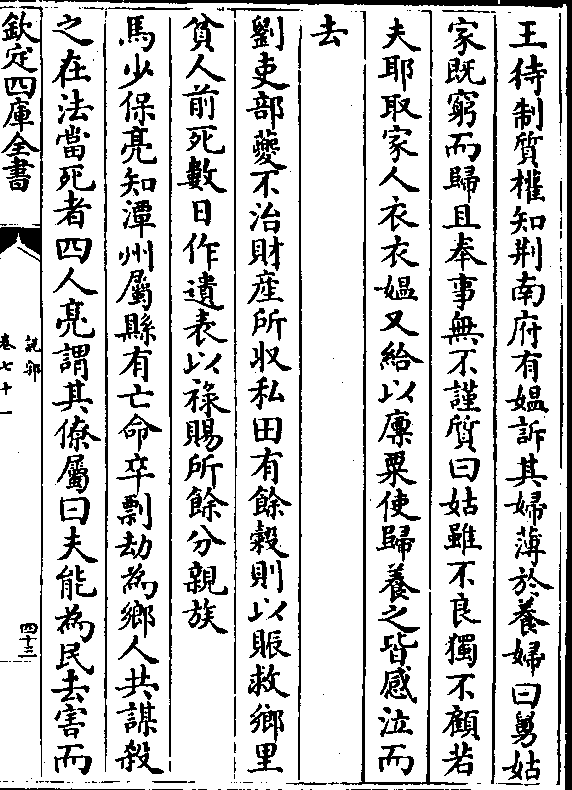 王待制質權知荆南府有媪訴其婦薄於養婦曰舅姑
家既窮而歸且奉事無不謹質曰姑雖不良獨不顧若
夫耶取家人衣衣媪又給以廪粟使歸養之皆感泣而
去
劉吏部夔不治財産所收私田有餘穀則以賑救鄉里
貧人前死數日作遺表以祿賜所餘分親族
馬少保亮知潭州屬縣有亡命卒剽劫為鄉人共謀殺
之在法當死者四人亮謂其僚屬曰夫能為民去害而
欽定四庫全書
說郛
卷七十一
四十三